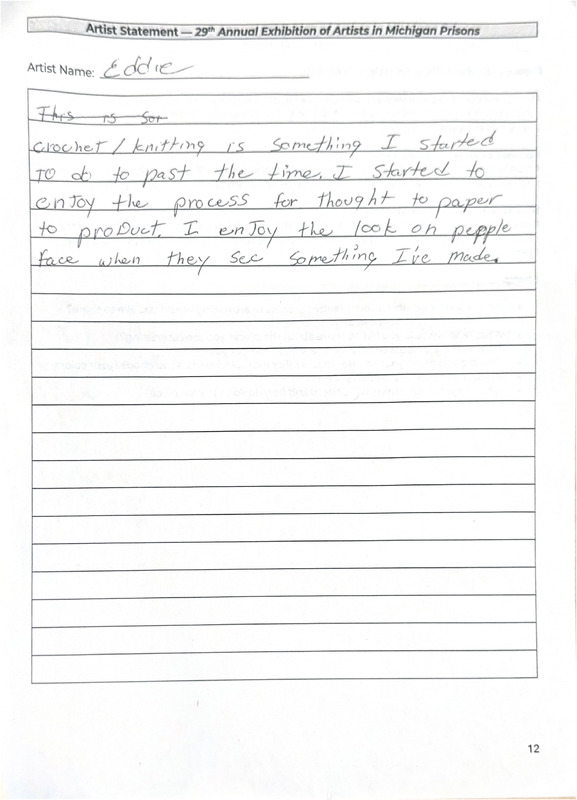 Artist Statement — 29th Annual Exhibition of Artists in Michigan Prisons
Artist Name: Eddie
This is for
Crochet / knitting is something I started
TO do to past the time. I started to
enJoy the process for thought to paper
to proDuct. I enJoy the look on people
face when they see something I've made.
12